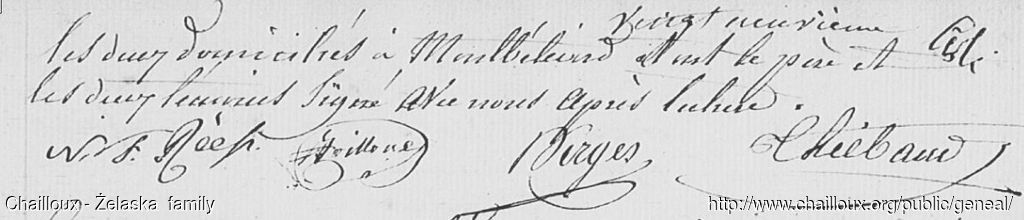 vingt neuvieme
les deux domiciliés à Montbéliard et ont le père et
les deux témoins signé avec nous après lecture.
N. F. Rees. Berger Thiébaud
Chaillouz - Żelaska family http://www.chailloux.org/public/geneal/